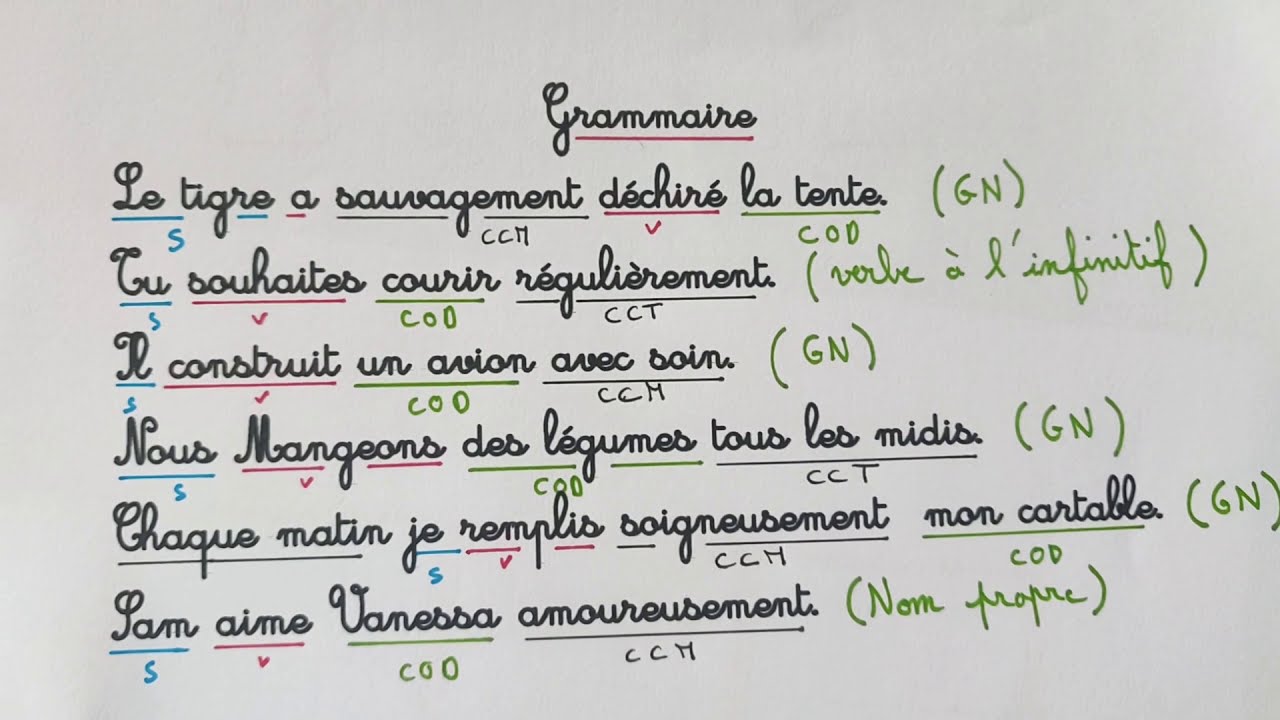 Grammaire
Le tigre a sauvagement déchiré la tente. (GN)
S CCM v COD
Tu souhaites courir régulièrement. (verbe à l'infinitif)
S v COD CCT
Il construit un avion avec soin. (GN)
S v COD CCM
Nous Mangeons des légumes tous les midis. (GN)
S v COD CCT
Chaque matin je remplis soigneusement mon cartable. (GN)
S v CCM COD
Sam aime Vanessa amoureusement. (Nom propre)
S v COD CCM